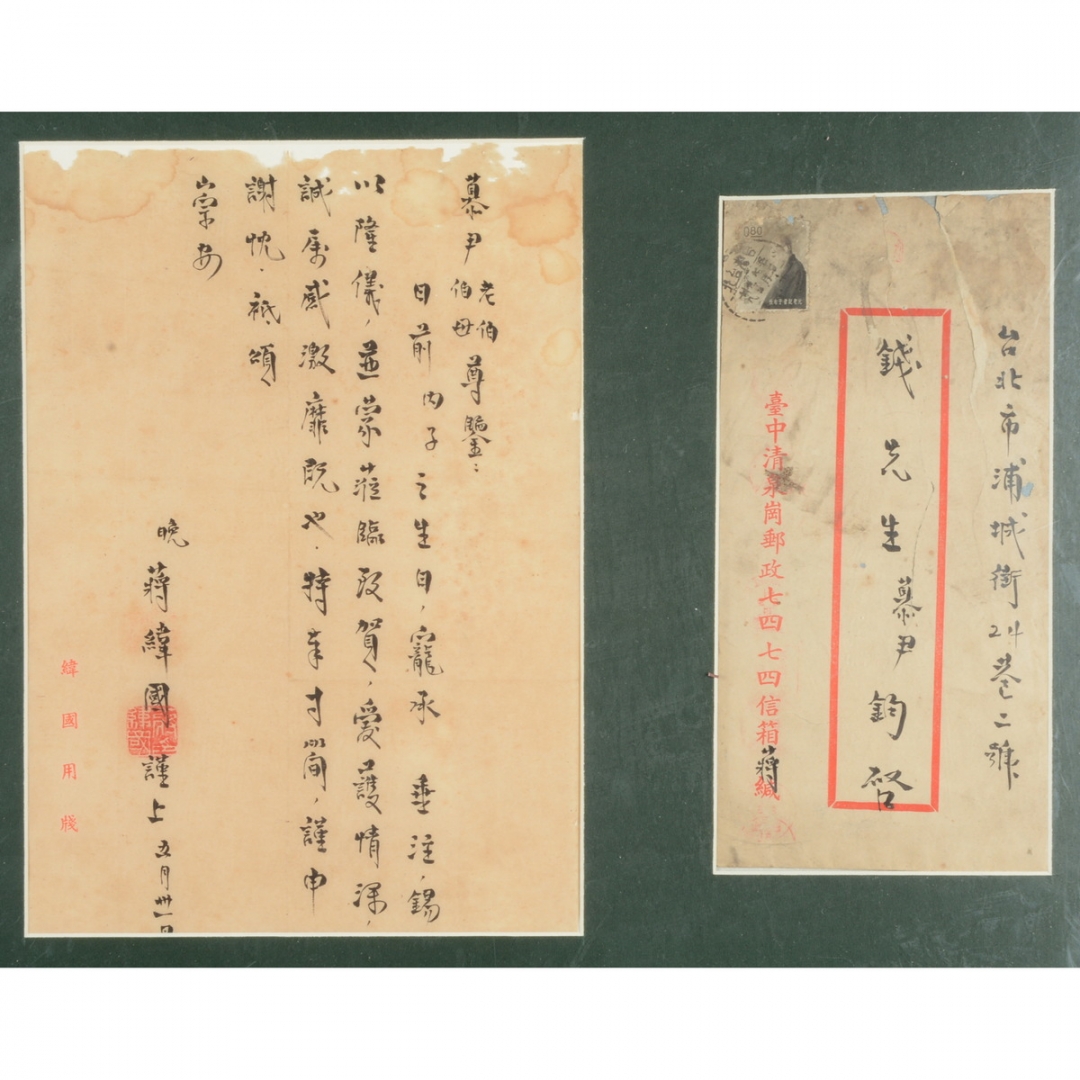 慕尹老伯伯母尊鑒：
日前內子之生日，寵承　垂注，錫
以隆儀，並蒙蒞臨致賀，愛護情深，
誠屬感激靡既也．特奉寸箋，謹申
謝忱．祗頌
崇安
晚 蔣緯國謹上 五月卅一日
緯國用牋
台北市浦城街24巷二號
錢先生慕尹鈞啓
臺中清泉崗郵政七四七四信箱蔣緘
080